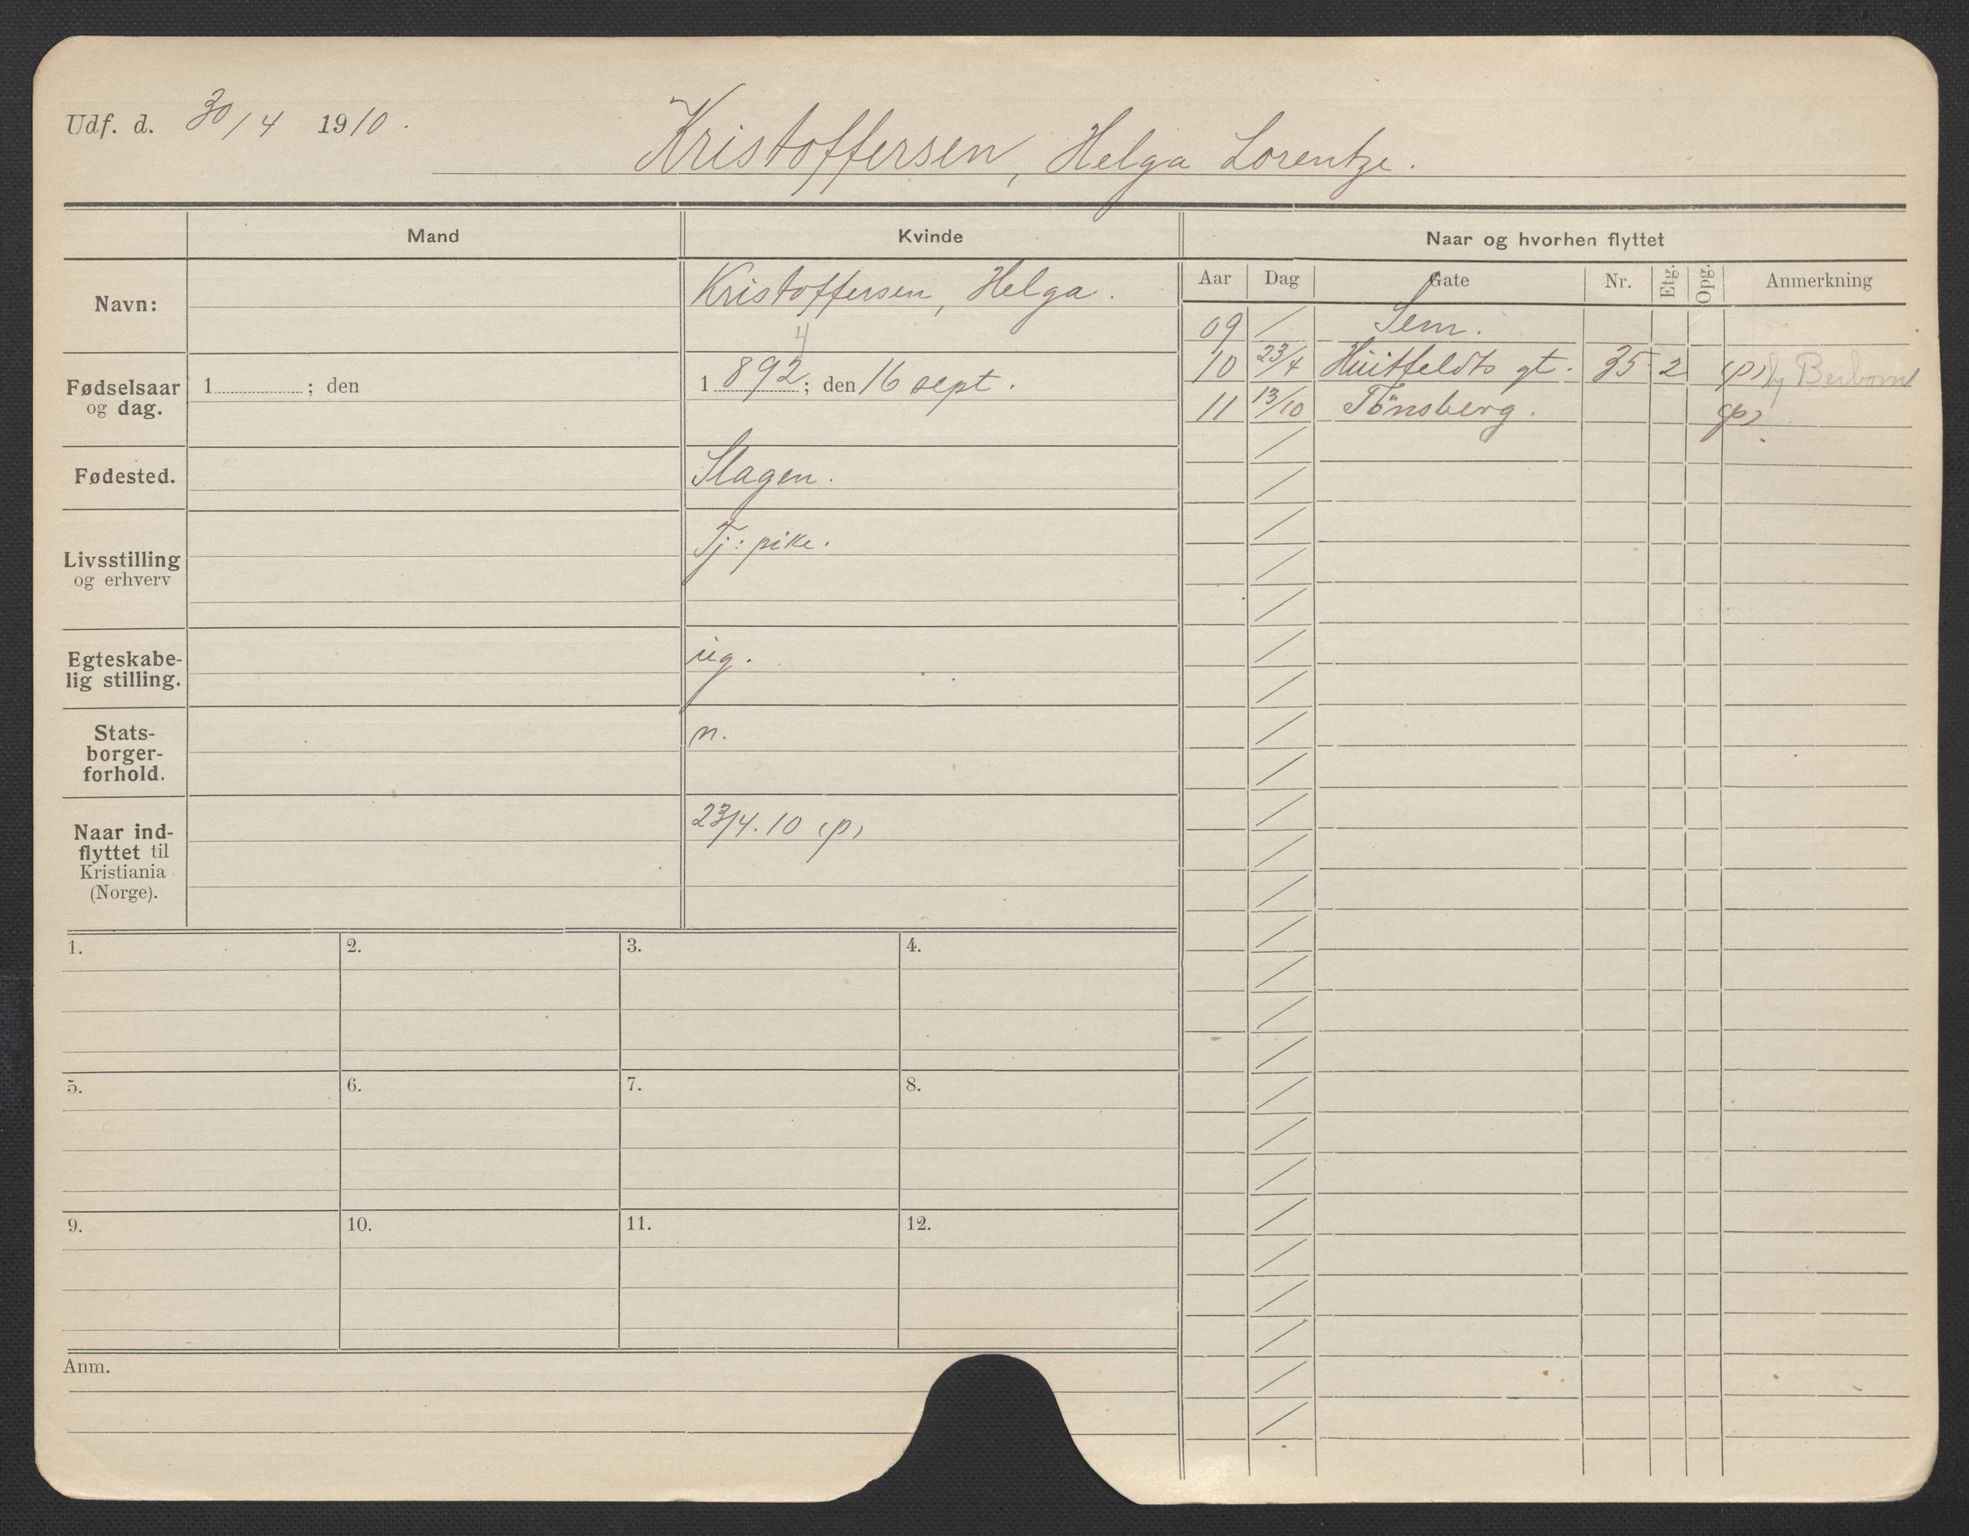 Udf. d. 30/4 1910.
Kristoffersen, Helga Lorentze.
Mand
Kvinde
Naar og hvorhen flyttet
Navn:
Kristoffersen, Helga.
Aar Dag Gate Nr. Etg. Opg. Anmerkning
09 / Sem.
10 23/4 Huitfeldts gt. 35 2 (p)
11 13/10 Tönsberg. (p)
4
Fødselsaar
og dag.
1 ; den
1 892 ; den 16 sept.
Fødested.
Slagen.
Livsstilling
og erhverv
Tj: pike.
Egteskabe-
lig stilling.
ug.
Stats-
borger-
forhold.
n.
Naar ind-
flyttet til
Kristiania
(Norge).
23/4.10 (p)
1. 2. 3. 4.
5. 6. 7. 8.
9. 10. 11. 12.
Anm.